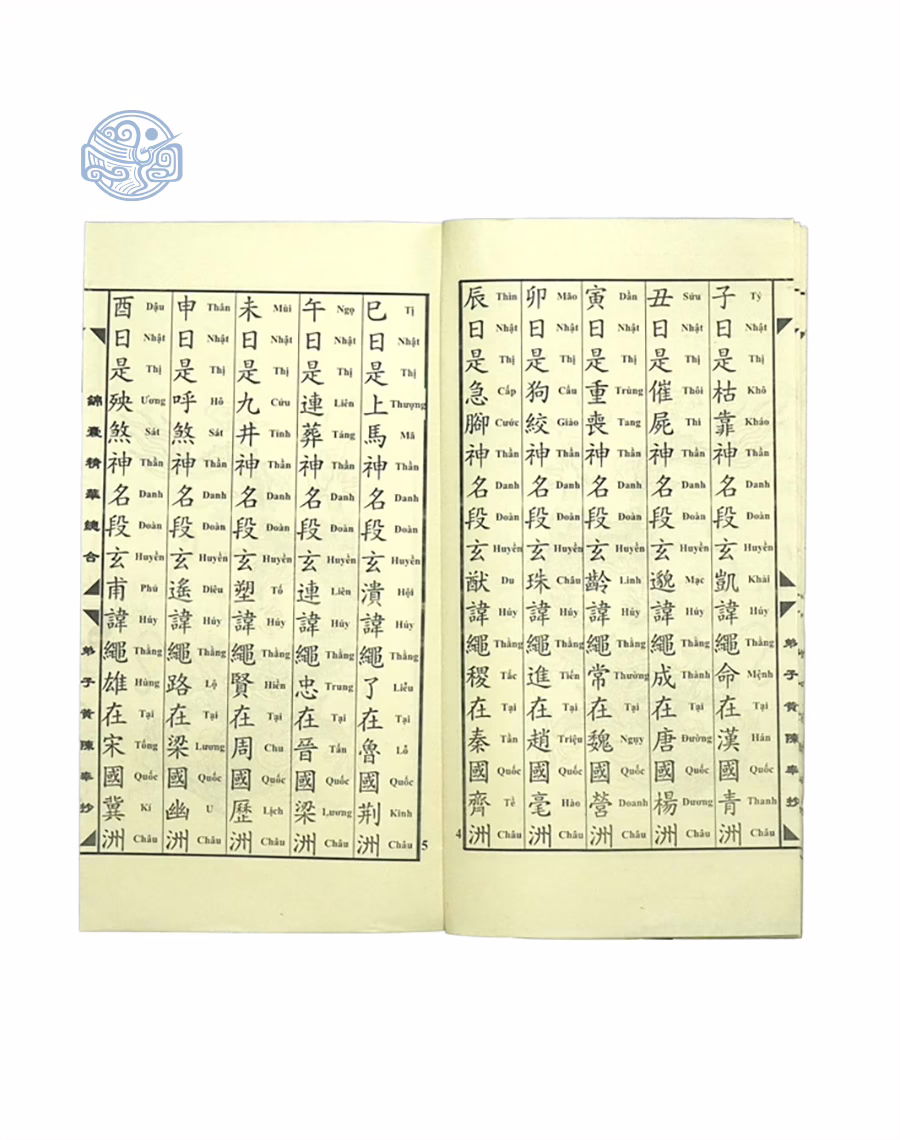 子日是枯靠神名段玄凱諱繩命在漢國青洲
Tý Nhật Thị Khô Kháo Thần Danh Đoàn Huyền Khải Húy Thằng Mệnh Tại Hán Quốc Thanh Châu
丑日是催屍神名段玄邈諱繩成在唐國楊洲
Sửu Nhật Thị Thôi Thi Thần Danh Đoàn Huyền Mạc Húy Thằng Thành Tại Đường Quốc Dương Châu
寅日是重喪神名段玄齡諱繩常在魏國營洲
Dần Nhật Thị Trùng Tang Thần Danh Đoàn Huyền Linh Húy Thằng Thường Tại Ngụy Quốc Doanh Châu
卯日是狗絞神名段玄珠諱繩進在趙國毫洲
Mão Nhật Thị Cẩu Giảo Thần Danh Đoàn Huyền Châu Húy Thằng Tiến Tại Triệu Quốc Hào Châu
辰日是急腳神名段玄猷諱繩稷在秦國齊洲
Thìn Nhật Thị Cấp Cước Thần Danh Đoàn Huyền Du Húy Thằng Tắc Tại Tần Quốc Tề Châu
4
弟子黃陳奉抄
巳日是上馬神名段玄潰諱繩了在魯國荆洲
Tị Nhật Thị Thượng Mã Thần Danh Đoàn Huyền Hội Húy Thằng Liễu Tại Lỗ Quốc Kinh Châu
午日是連葬神名段玄連諱繩忠在晉國梁洲
Ngọ Nhật Thị Liên Táng Thần Danh Đoàn Huyền Liên Húy Thằng Trung Tại Tấn Quốc Lương Châu
未日是九井神名段玄塑諱繩賢在周國歷洲
Mùi Nhật Thị Cửu Tỉnh Thần Danh Đoàn Huyền Tố Húy Thằng Hiền Tại Chu Quốc Lịch Châu
申日是呼煞神名段玄遙諱繩路在梁國幽洲
Thân Nhật Thị Hô Sát Thần Danh Đoàn Huyền Diêu Húy Thằng Lộ Tại Lương Quốc U Châu
酉日是殃煞神名段玄甫諱繩雄在宋國冀洲
Dậu Nhật Thị Ương Sát Thần Danh Đoàn Huyền Phủ Húy Thằng Hùng Tại Tống Quốc Kí Châu
5
錦囊精華總合
弟子黃陳奉抄